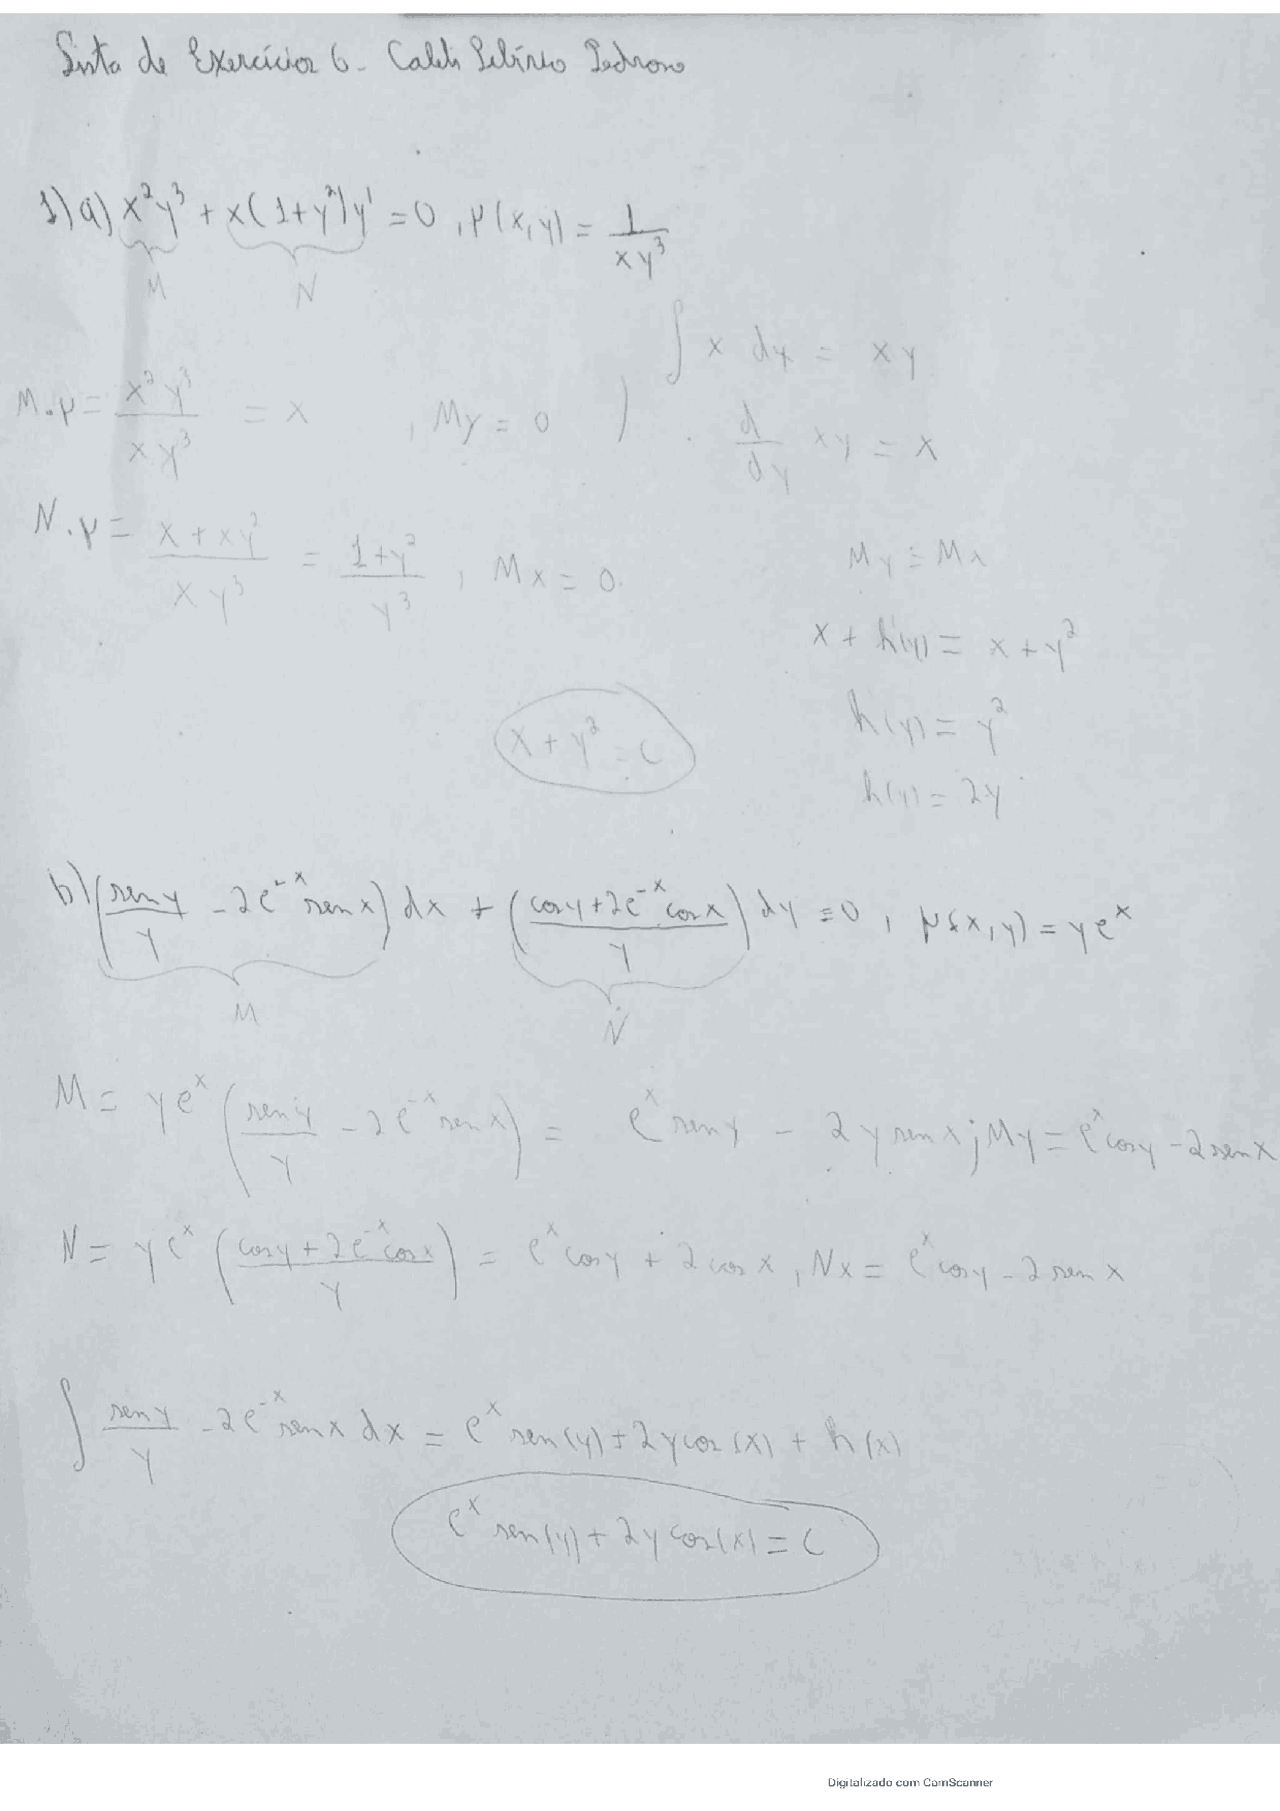 Lista de Exercícios 6 - Pedroso
1) a) x²y³ + x(1+y²)y' = 0 , μ(x,y) = 1/(xy³)
M N
∫ x dy = xy
M.μ = x²y³/(xy³) = x , My = 0 )
. d/dy xy = x
N.μ = (x + xy²)/(xy³) = (1+y²)/y³ , Mx = 0
My = Mx
x + h(y) = x + y²
h(y) = y²
x + y² = c
h(y) = 2y
b) (sen y/y - 2e^-x sen x) dx + ((cos y + 2e^-x cos x)/y) dy = 0 , μ(x,y) = ye^x
M N
M = ye^x (sen y/y - 2e^-x sen x) = e^x sen y - 2y sen x ; My = e^x cos y - 2 sen x
N = ye^x ((cos y + 2e^-x cos x)/y) = e^x cos y + 2 cos x , Nx = e^x cos y - 2 sen x
∫ sen y/y - 2e^-x sen x dx = e^x sen(y) + 2y cos(x) + h(x)
e^x sen(y) + 2y cos(x) = c
Digitalizado com CamScanner